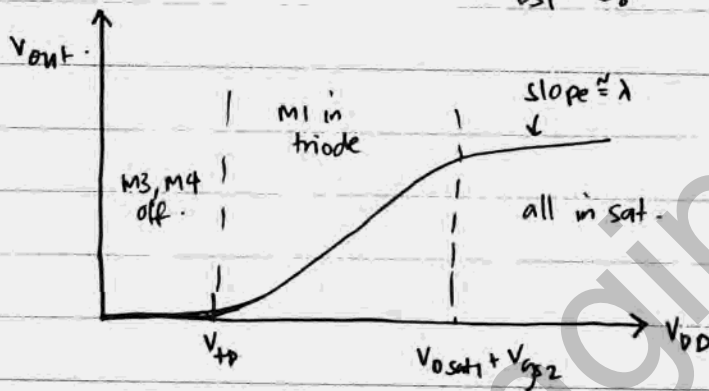 Vout.
M1 in
triode
slope ≅ λ
M3, M4
off.
all in sat.
Vtp
VDsat1 + Vgs2
VDD